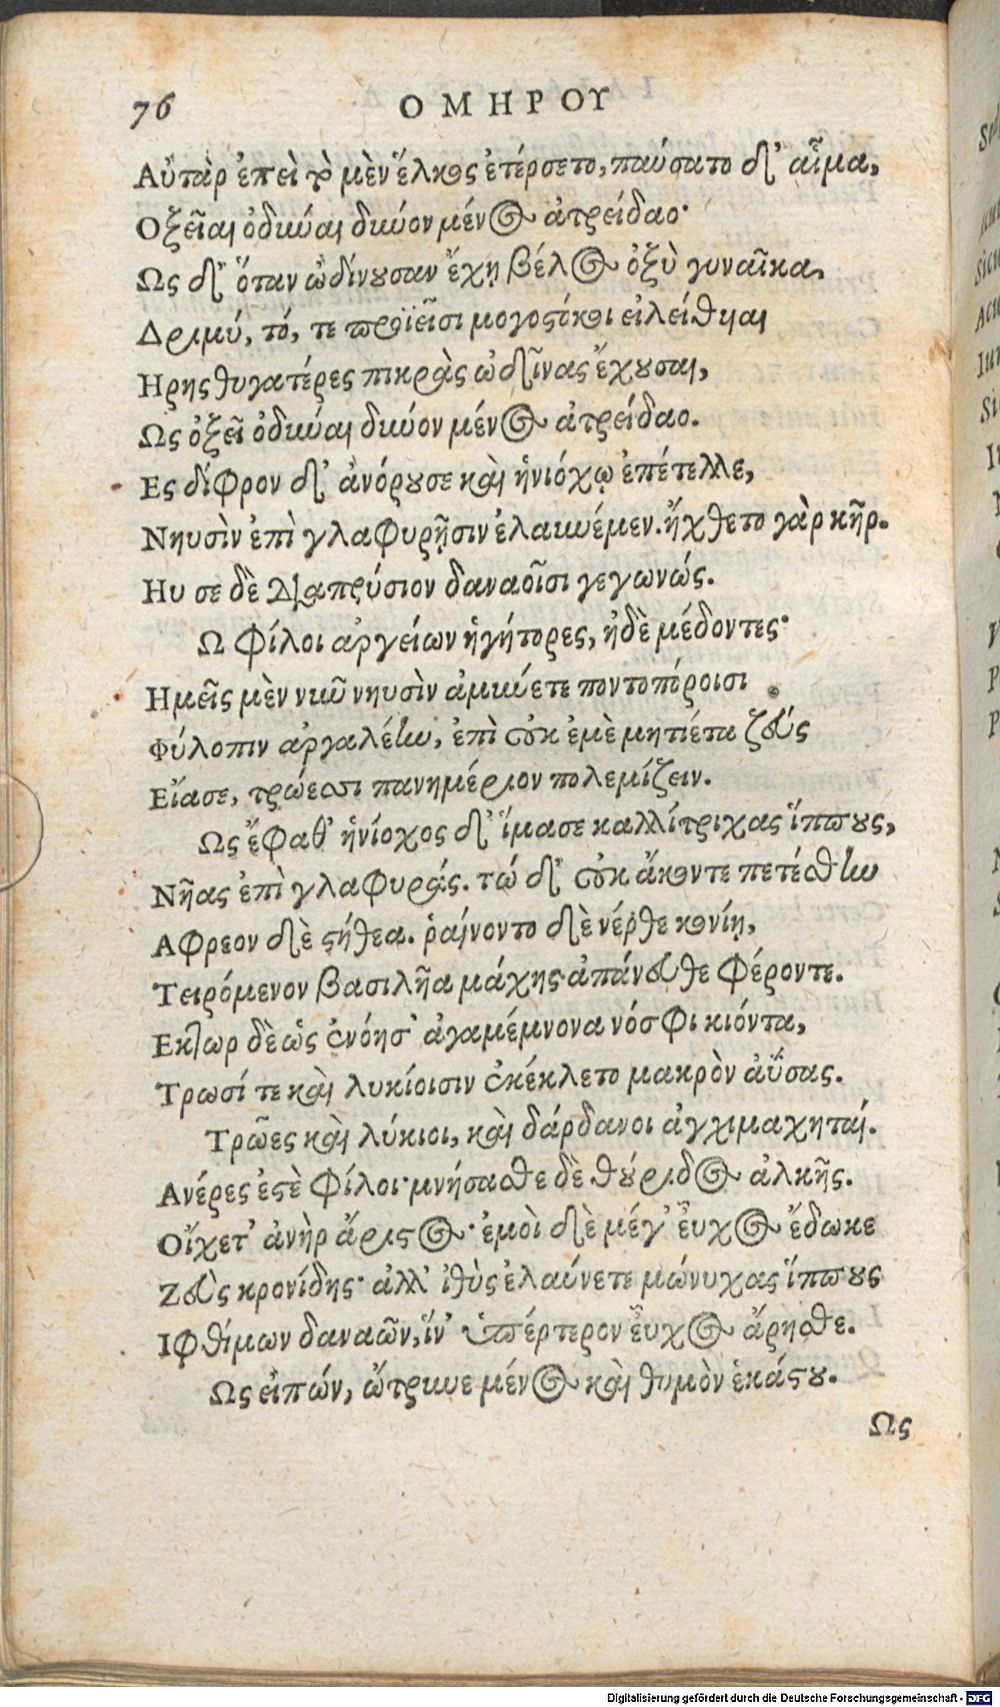 76 ΟΜΗΡΟΥ
Αὐτὰρ ἐπεὶ τὸ μὲν ἕλκος ἐτέρσετο, παύσατο δ' αἷμα,
Οξεῖαι ὀδύναι δῦνον μένος ἀτρείδαο·
Ως δ' ὅταν ὠδίνουσαν ἔχῃ βέλος ὀξὺ γυναῖκα,
Δριμύ, τό, τε προϊεῖσι μογοστόκοι εἰλείθυιαι
Ηρης θυγατέρες πικρὰς ὠδῖνας ἔχουσαι,
Ως ὀξεῖ ὀδύναι δῦνον μένος ἀτρείδαο.
Ες δίφρον δ' ἀνόρουσε καὶ ἡνιόχῳ ἐπέτελλε,
Νηυσὶν ἐπὶ γλαφυρῇσιν ἐλαυνέμεν. ἤχθετο γὰρ κῆρ.
Ηυ σε δὲ διαπρύσιον δαναοῖσι γεγωνώς.
Ω φίλοι ἀργείων ἡγήτορες, ἠδὲ μέδοντες·
Ημεῖς μὲν νῦν νηυσὶν ἀμύνετε ποντοπόροισι
Φύλοπιν ἀργαλέην, ἐπὶ οὐκ ἐμὲ μητιέτα ζεύς
Εἴασε, τρώεσσι πανημέριον πολεμίζειν.
Ως ἔφαθ' ἡνίοχος δ' ἵμασε καλλίτριχας ἵππους,
Νῆας ἐπὶ γλαφυράς. τώ δ' οὐκ ἄκοντε πετέσθην
Αφρεον δὲ στήθεα. ῥαίνοντο δὲ νέρθε κονίῃ,
Τειρόμενον βασιλῆα μάχης ἀπάνευθε φέροντε.
Εκτωρ δὲ ὡς ἐνόησ' ἀγαμέμνονα νόσφι κιόντα,
Τρωσί τε καὶ λυκίοισιν ἐκέκλετο μακρὸν ἀΰσας.
Τρῶες καὶ λύκιοι, καὶ δάρδανοι ἀγχιμαχηταί.
Ανέρες ἐστὲ φίλοι· μνήσασθε δὲ θούριδος ἀλκῆς.
Οἴχετ' ἀνὴρ ἄριστος· ἐμοὶ δὲ μέγ' εὖχος ἔδωκε
Ζεὺς κρονίδης· ἀλλ' ἰθὺς ἐλαύνετε μώνυχας ἵππους
Ιφθίμων δαναῶν, ἵν' ὑπέρτερον εὖχος ἄρησθε.
Ως εἰπών, ὤτρυνε μένος καὶ θυμὸν ἑκάστου.
Ως
Digitalisierung gefördert durch die Deutsche Forschungsgemeinschaft - DFG